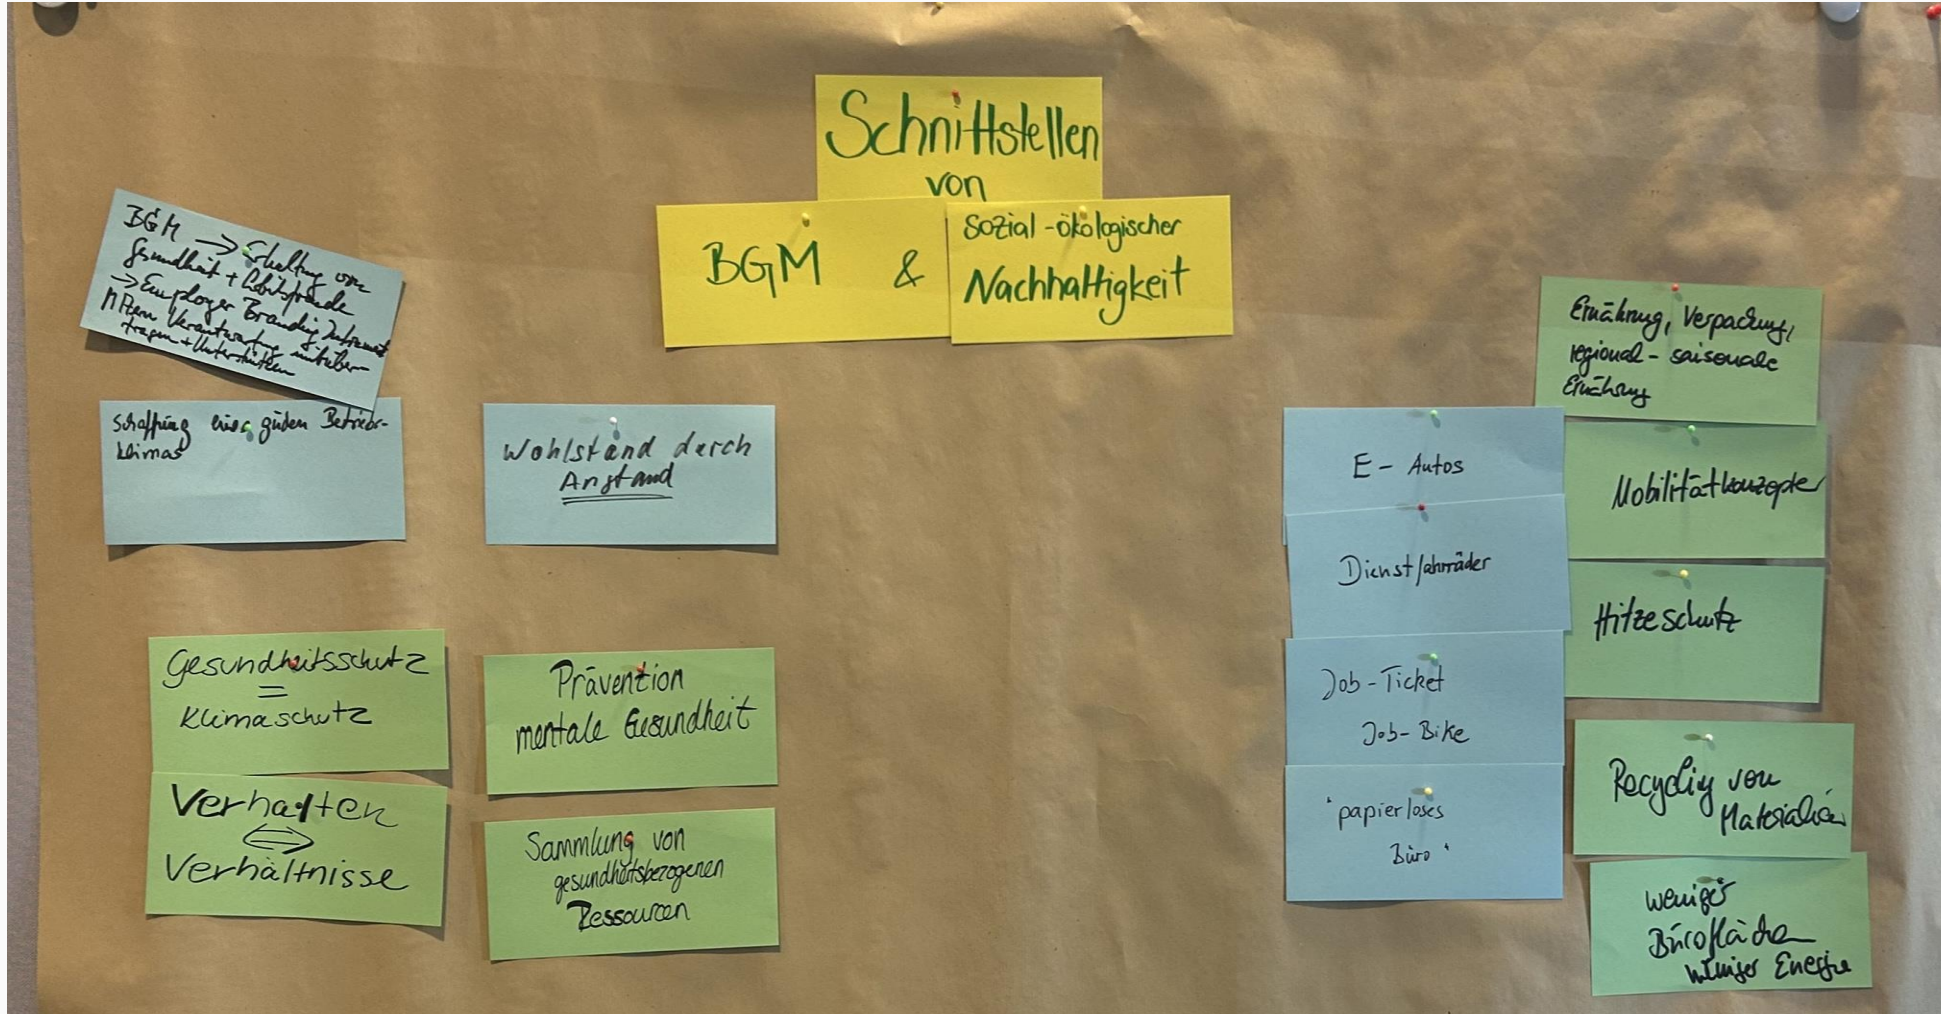 Schnittstellen
von
BGM &
Sozial-ökologischer
Nachhaltigkeit
BGM → Erhaltung von
Gesundheit + Arbeitsfreude
→ Employer Branding Instrument
Verantwortung mit über-
tragen + Unterstützen
Schaffung eines guten Betriebs-
klimas
Wohlstand durch
Anstand
Gesundheitsschutz
=
Klimaschutz
Verhalten
⇔
Verhältnisse
Prävention
mentale Gesundheit
Sammlung von
gesundheitsbezogenen
Ressourcen
E - Autos
Dienstfahrräder
Job-Ticket
Job-Bike
"papierloses
Büro"
Ernährung, Verpackung,
regional - saisonale
Ernährung
Mobilitätkonzepte
Hitzeschutz
Recycling von
Materialien
weniger
Bürofläche
weniger Energie